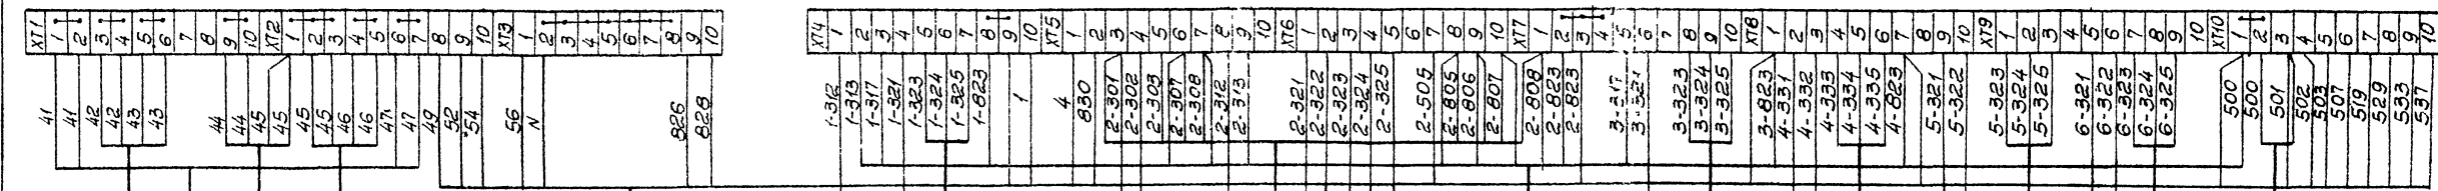 XT1 1 2 3 4 5 6 7 8 9 10 XT2 1 2 3 4 5 6 7 8 9 10 XT3 1 2 3 4 5 6 7 8 9 10
XT4 1 2 3 4 5 6 7 8 9 10 XT5 1 2 3 4 5 6 7 8 9 10 XT6 1 2 3 4 5 6 7 8 9 10 XT7 1 2 3 4 5 6 7 8 9 10 XT8 1 2 3 4 5 6 7 8 9 10 XT9 1 2 3 4 5 6 7 8 9 10 XT10 1 2 3 4 5 6 7 8 9 10
41 41 42 42 43 43 44 44 45 45 45 45 46 46 47 47 49 52 54 56 N 826 828
1-312 1-313 1-317 1-321 1-323 1-324 1-325 1-823 1 4 830 2-301 2-302 2-303 2-307 2-308 2-312 2-313 2-321 2-322 2-323 2-324 2-325 2-505 2-805 2-806 2-807 2-808 2-823 2-823 3-317 3-321 3-323 3-324 3-325 3-823 4-331 4-332 4-333 4-334 4-335 4-823 5-321 5-322 5-323 5-324 5-325 6-321 6-322 6-323 6-324 6-325 500 500 501 502 503 507 519 529 533 537